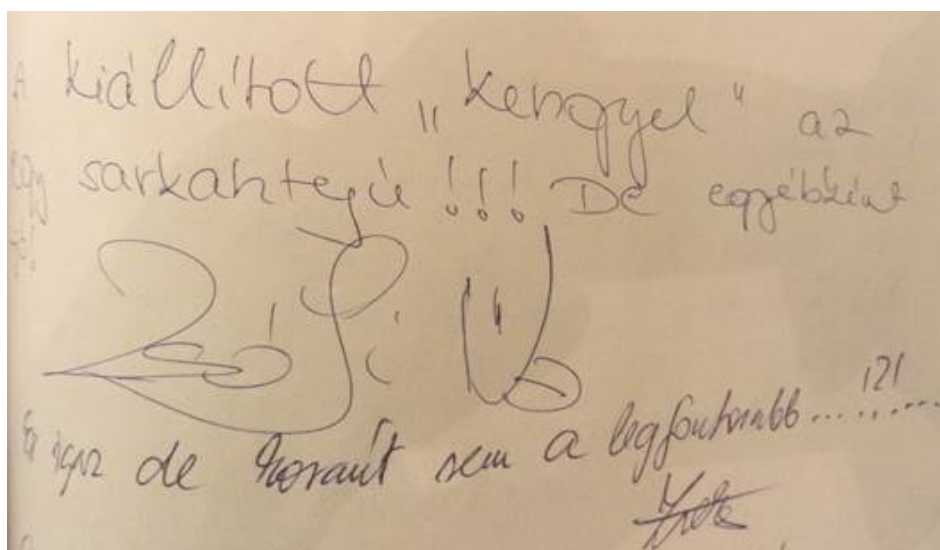 A kiállított „kengyel" az
egy sarkantyú!!! De egyébként
Ez igaz de koránt sem a legfontosabb.......!?!